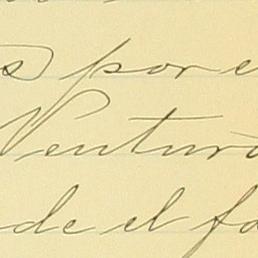 s por e
Ventura
de el fa